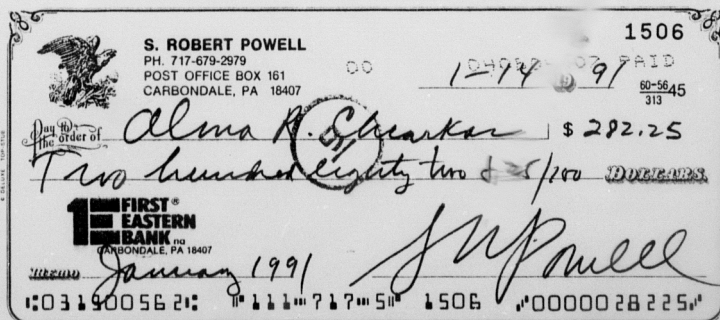 1506
S. ROBERT POWELL
PH. 717-679-2979
POST OFFICE BOX 161
CARBONDALE, PA 18407
PAID
1-14 1991
60-56 45
313
Pay to the order of Alma R. $ 282.25
Two hundred eighty two & 25/100 DOLLARS
1E FIRST®
EASTERN
BANK na
CARBONDALE, PA 18407
MEMO January 1991
S R Powell
⑆031900562⑆ ⑈111⑉717⑉5⑈ 1506 ⑈0000028225⑈